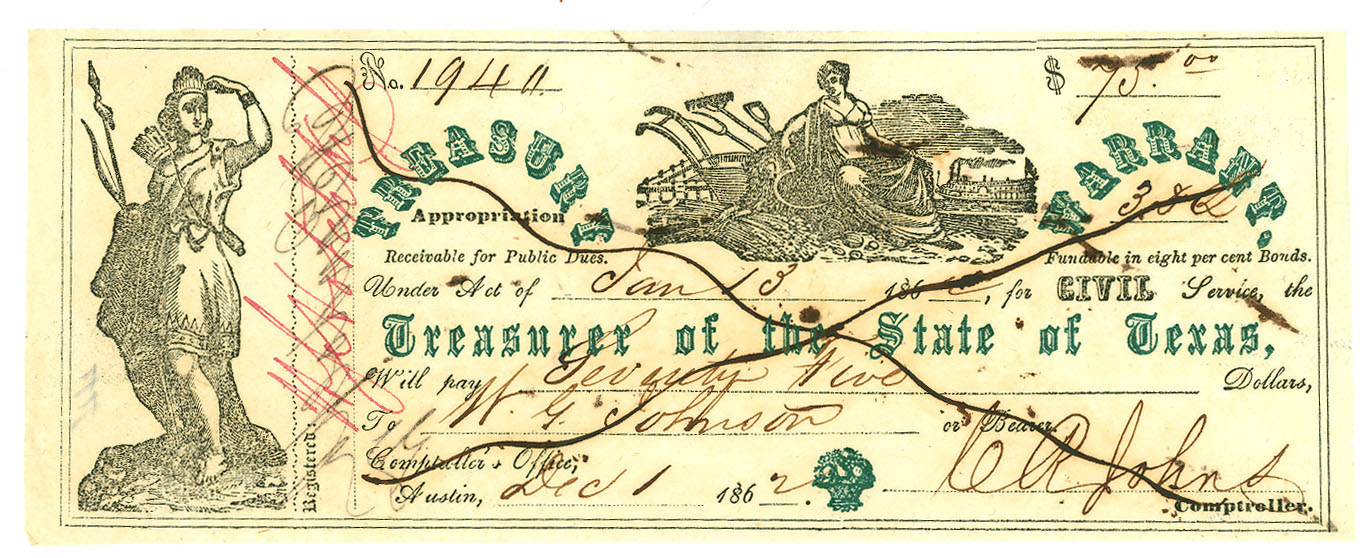 No. 1940.
$ 75.00
TREASURY WARRANT.
Appropriation
382
Receivable for Public Dues.
Fundable in eight per cent Bonds.
Under Act of Jan 13 1862, for CIVIL Service, the
Treasurer of the State of Texas,
Will pay Seventy Five Dollars,
To W. G. Johnson or Bearer.
Comptroller's Office,
Austin, Dec 1 1862.
C R Johns
Comptroller.
Registered: